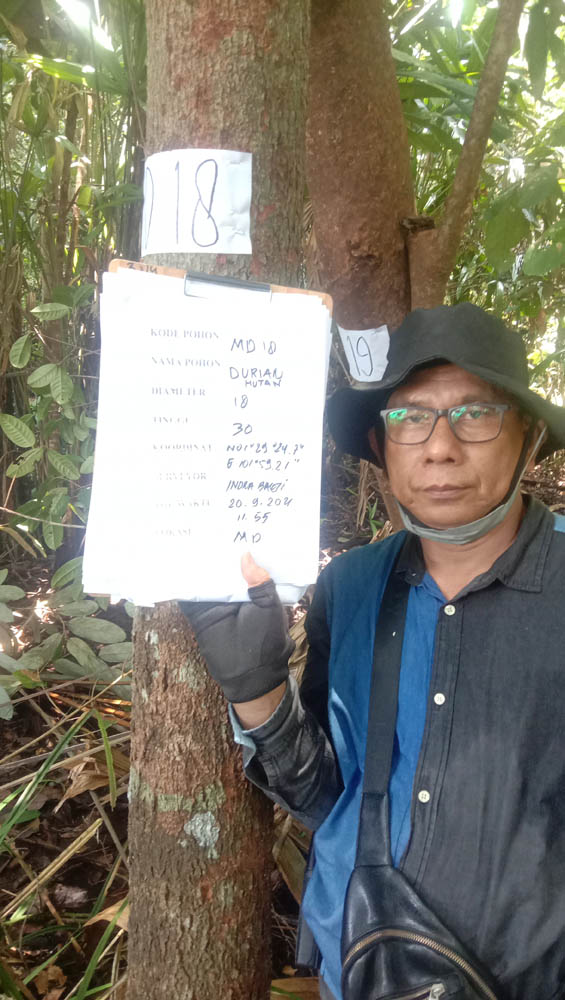 18
KODE POHON MD 18
NAMA POHON DURIAN HUTAN
DIAMETER 18
TINGGI 30
KOORDINAT N01°29'24.7"
E 101°59.21"
SURVEYOR INDRA
TGL/WAKTU 20.9.2021
11.55
LOKASI MD
19